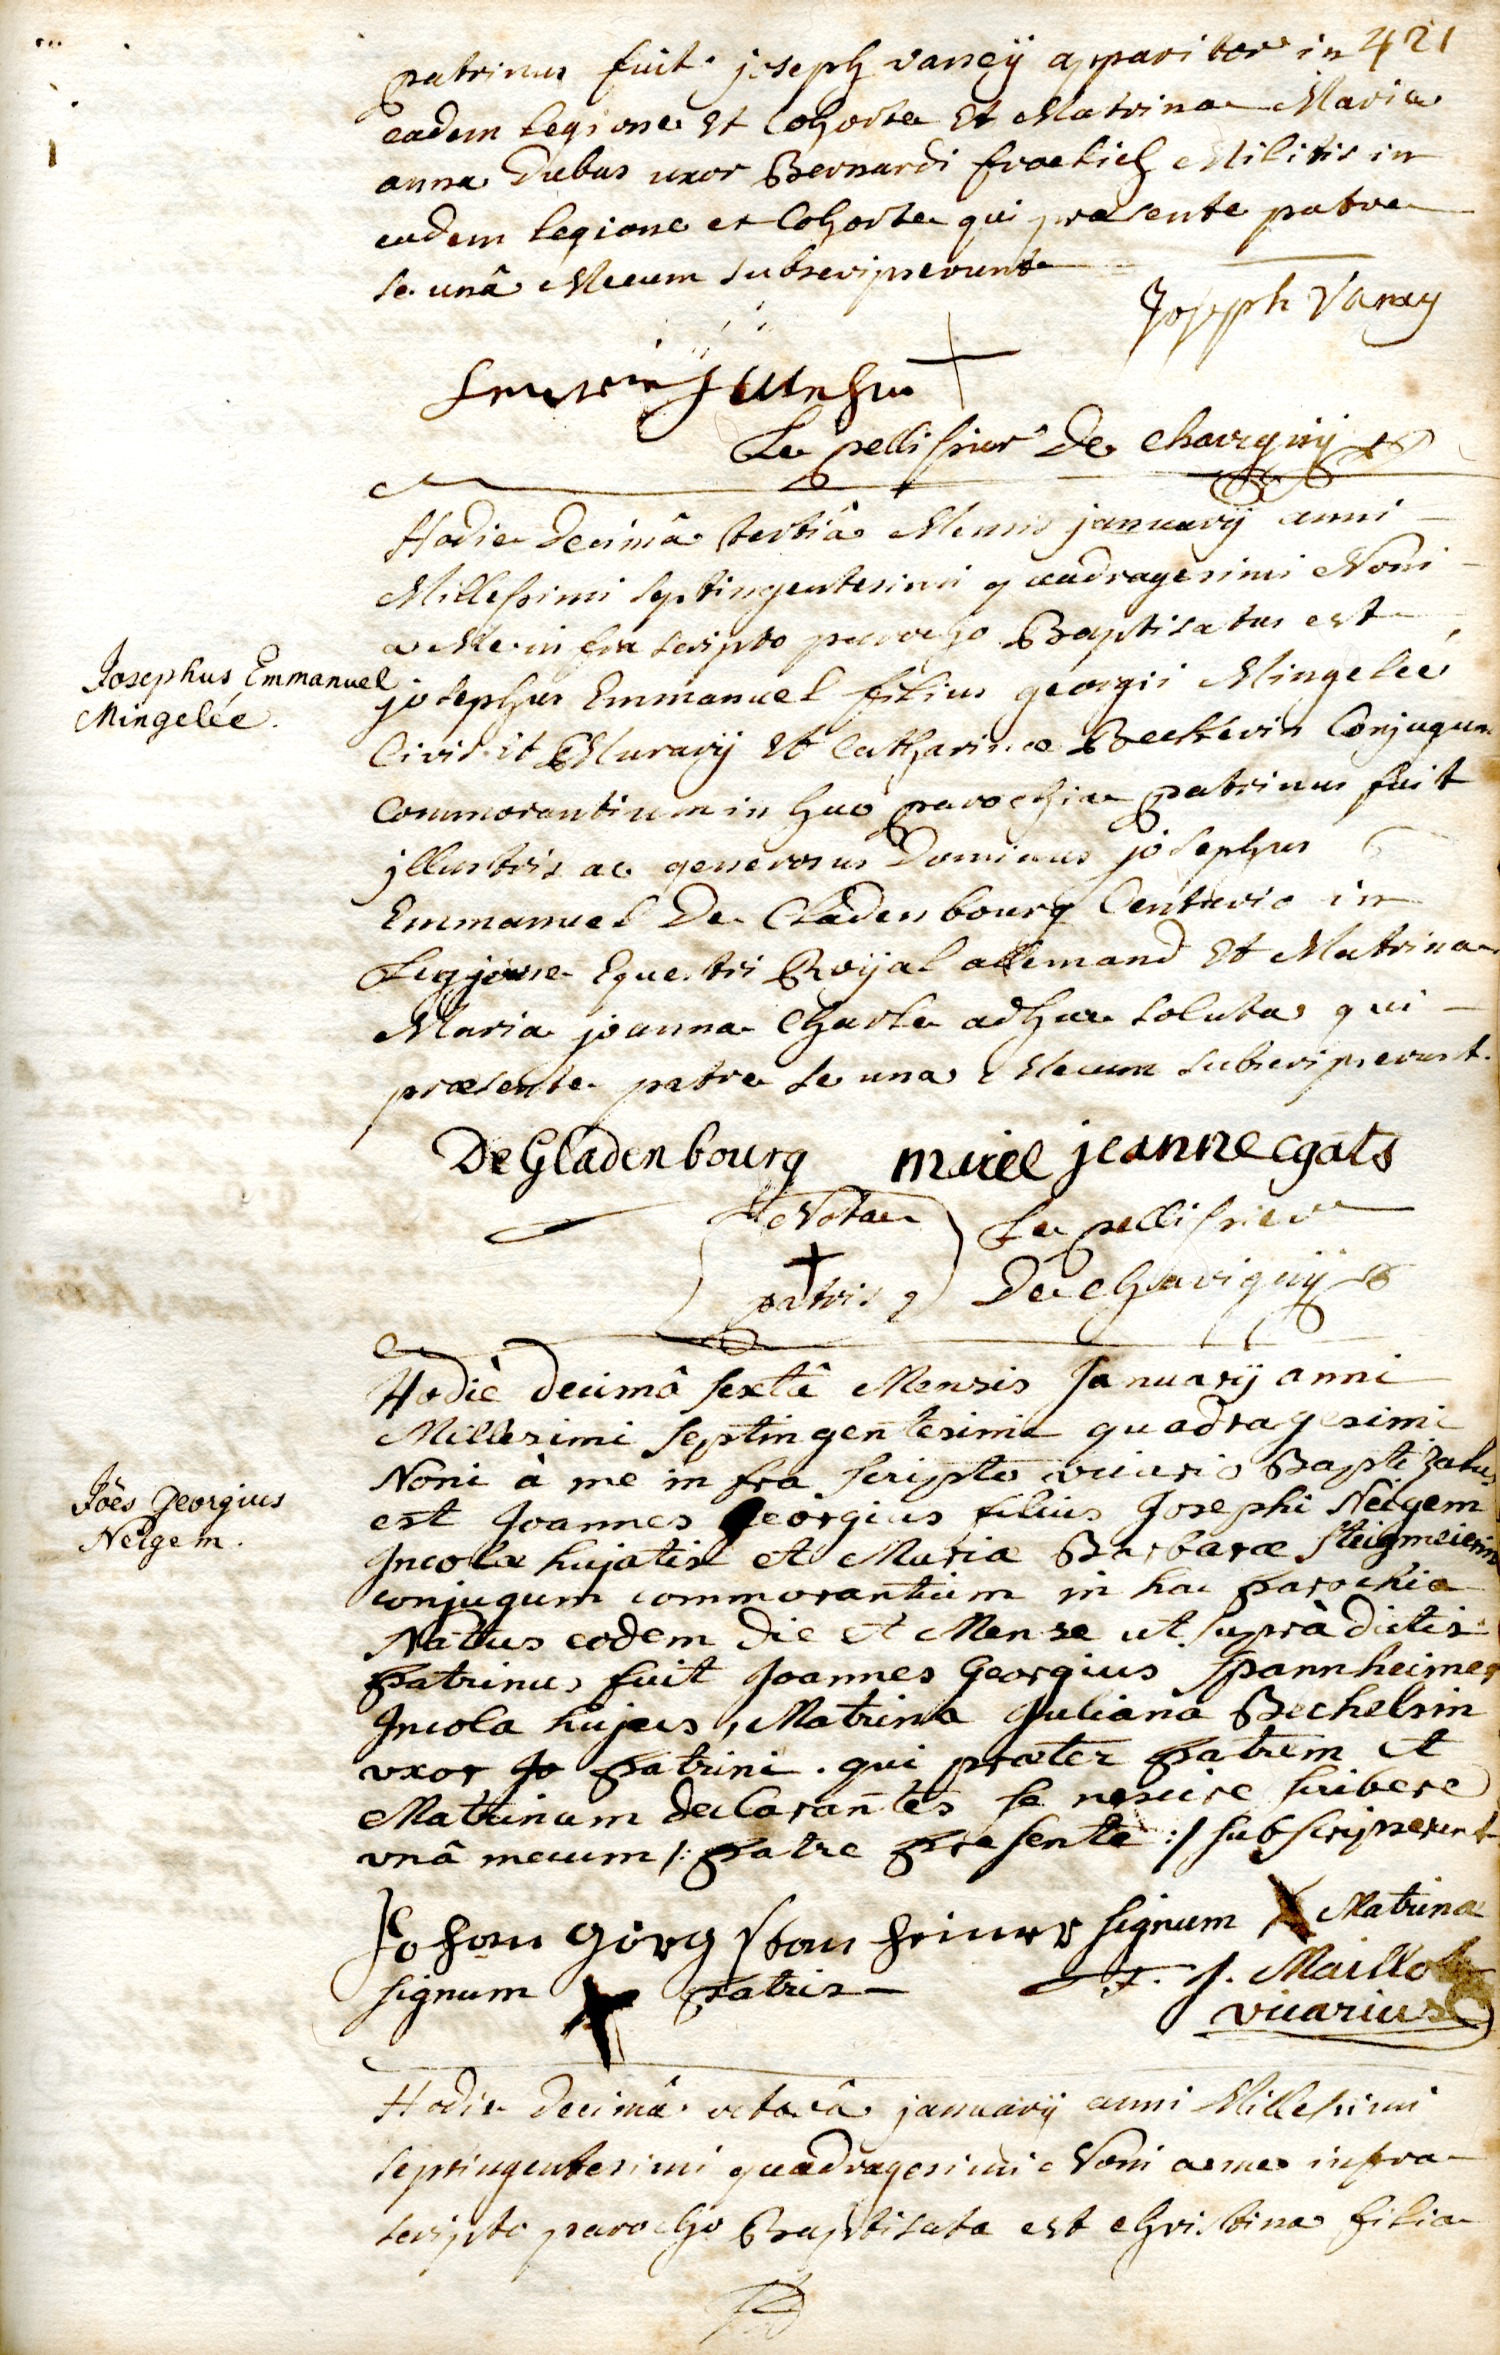 421
patrinus fuit joseph vancÿ apparitor in
eadem legione Et Cohorte Et Matrina Maria
anna Dubas uxor Bernardi froelich Militis in
eadem legione et Cohorte qui præsente patre
se unâ Mecum subscripserunt
Joseph Vancy
+
Le pellissier De Chavignÿ
Hodie Decimâ tertiâ Mensis januarÿ anni
Millessimi septingentesimi quadragesimi Noni
a Me infra scripto parocho Baptisatus est
Josephus Emmanuel
Mingelée.
josephus Emmanuel filius georgii Mingelée
Civis Et Murarÿ Et Catharinæ Beckerin Conjugum
Commorantium in hac parochia patrinus fuit
jllustris ac generosus Dominus josephus
Emmanuel De Cladenbourg Centurio in
Legione Equestri Roÿal allemand Et Matrina
Maria joanna Charle adhuc soluta qui
præsente patre se una Mecum subscripserunt.
De Gladenbourg mariee jeanne cgats
Nota Le pellissier
+
patris De Chavignÿ
Hodiè decimâ sextâ Mensis Januarÿ anni
Millesimi septingentesimi quadragesimi
Noni à me infra scripto vicario Baptizatus
Joēs Georgius
Neigem.
est Joannes Georgius filius Josephi Neigem
Incolæ hujatis et Mariæ Barbaræ Steigmeierin
conjugum commorantium in hac parochia
Natus eodem die et Mense ut suprà dictis
patrinus fuit Joannes Georgius Spannheimer
Incola hujas, Matrina Juliana Bechelsin
uxor Jo patrini. qui præter patrem et
Matrinam declarantes se nescire scribere
unâ mecum /: patre præsente :/ subscripserunt
Johan Görg Spanheimer signum X Matrina
signum X patris
F. J. Maillot
vicarius
Hodie Decimâ octavâ januarÿ anni Millessimi
septingentesimi quadragesimi Noni a me infra
scripto parocho Baptisata est Christina filia